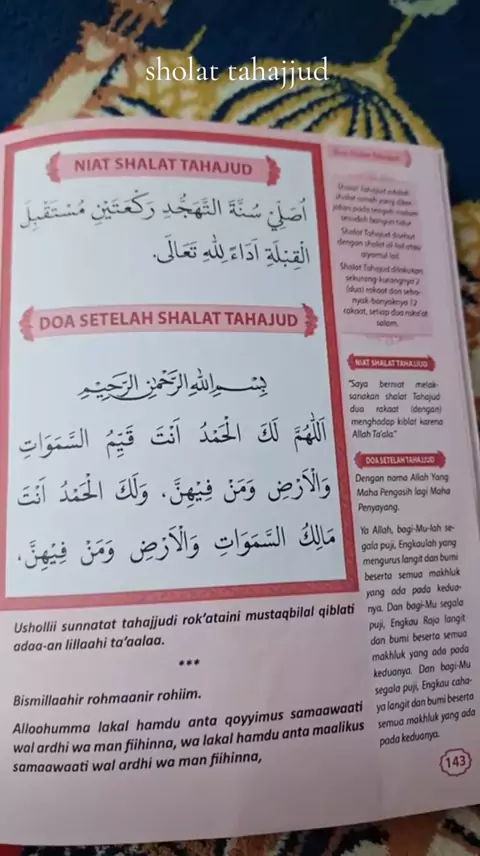 sholat tahajjud
NIAT SHALAT TAHAJUD
اُصَلِّيْ سُنَّةَ التَّهَجُّدِ رَكْعَتَيْنِ مُسْتَقْبِلَ
الْقِبْلَةِ اَدَاءً لِلّٰهِ تَعَالَى.
DOA SETELAH SHALAT TAHAJUD
بِسْمِ اللهِ الرَّحْمٰنِ الرَّحِيْمِ
اَللّٰهُمَّ لَكَ الْحَمْدُ اَنْتَ قَيِّمُ السَّمَوَاتِ
وَالْاَرْضِ وَمَنْ فِيْهِنَّ، وَلَكَ الْحَمْدُ اَنْتَ
مَالِكُ السَّمَوَاتِ وَالْاَرْضِ وَمَنْ فِيْهِنَّ،
Ushollii sunnatat tahajjudi rok'ataini mustaqbilal qiblati
adaa-an lillaahi ta'aalaa.
***
Bismillaahir rohmaanir rohiim.
Alloohumma lakal hamdu anta qoyyimus samaawaati
wal ardhi wa man fiihinna, wa lakal hamdu anta maalikus
samaawaati wal ardhi wa man fiihinna,
Shalat Tahajud adalah
shalat sunah yang diker-
jakan pada tengah malam
sesudah bangun tidur.
Shalat Tahajud disebut
dengan shalat al-lail atau
qiyamul lail.
Shalat Tahajud dilakukan
sekurang-kurangnya 2
(dua) rakaat dan seba-
nyak-banyaknya 12
rakaat, setiap dua raka'at
salam.
NIAT SHALAT TAHAJJUD
"Saya berniat melak-
sanakan shalat Tahajud
dua rakaat (dengan)
menghadap kiblat karena
Allah Ta'ala."
DOA SETELAH TAHAJJUD
Dengan nama Allah Yang
Maha Pengasih lagi Maha
Penyayang.
Ya Allah, bagi-Mu-lah se-
gala puji, Engkaulah yang
mengurus langit dan bumi
beserta semua makhluk
yang ada pada kedua-
nya. Dan bagi-Mu segala
puji, Engkau Raja langit
dan bumi beserta semua
makhluk yang ada pada
keduanya. Dan bagi-Mu
segala puji, Engkau caha-
ya langit dan bumi beserta
semua makhluk yang ada
pada keduanya.
143